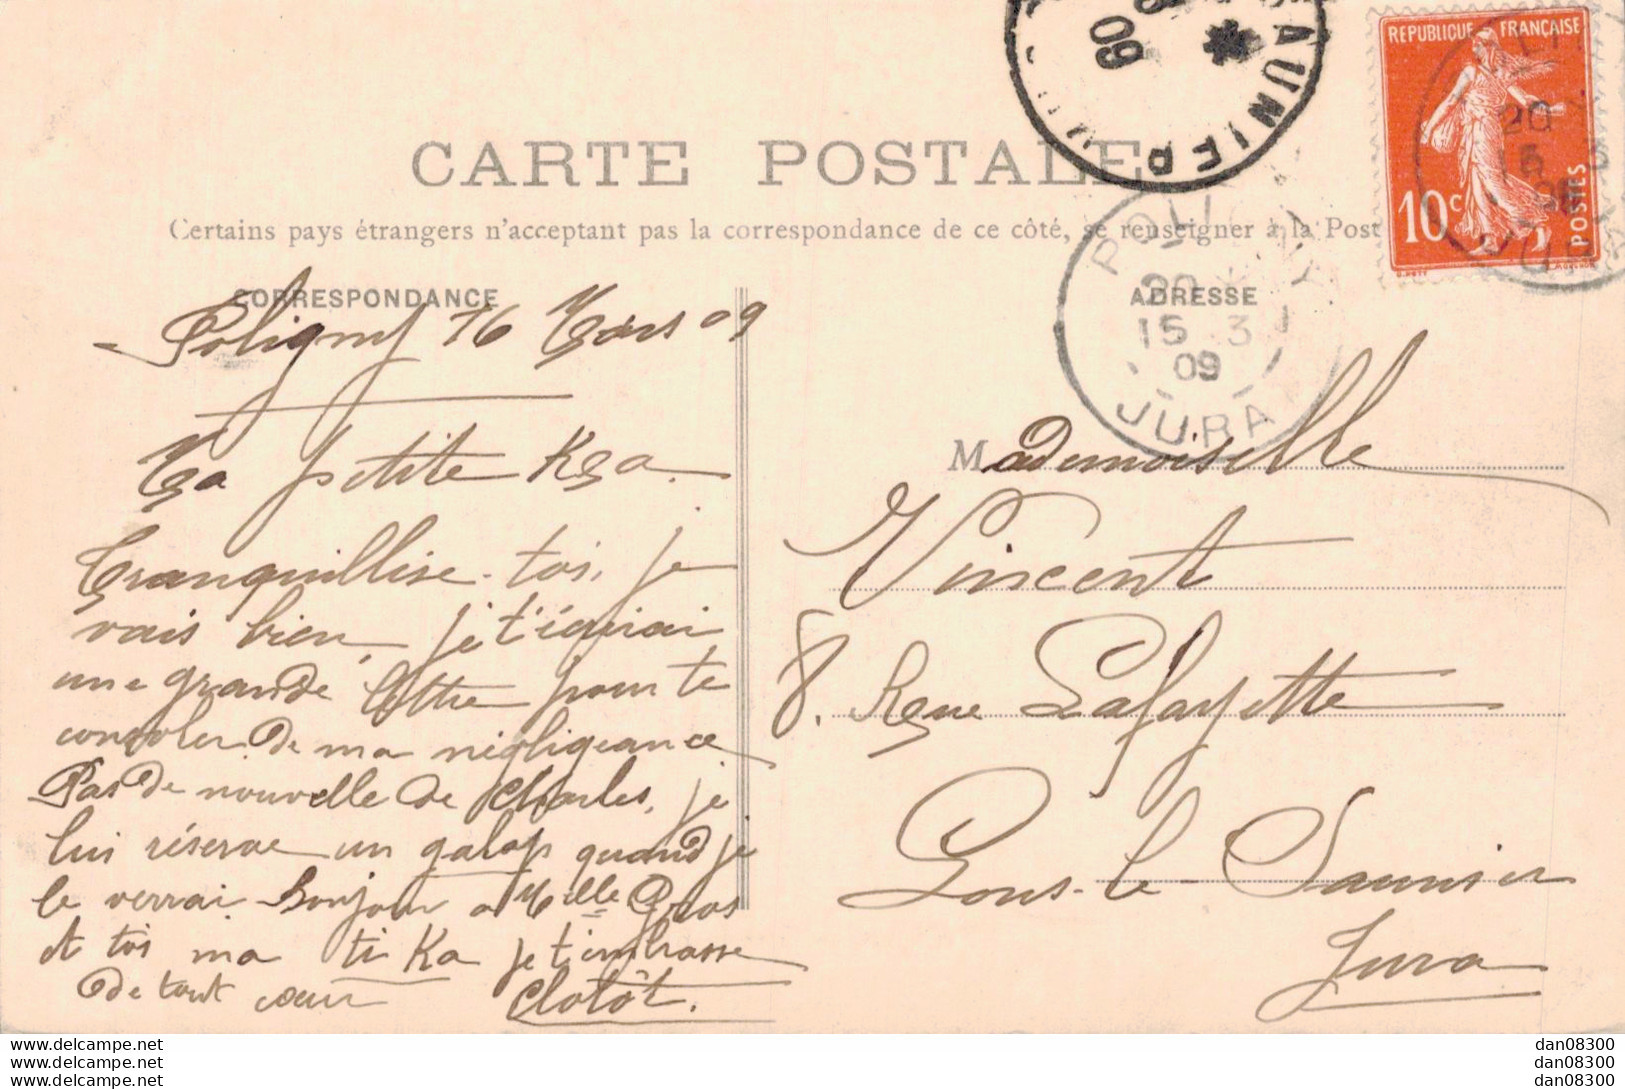 CARTE POSTALE
Certains pays étrangers n'acceptant pas la correspondance de ce côté, se renseigner à la Post
CORRESPONDANCE
ADRESSE
REPUBLIQUE FRANÇAISE
10c
POSTES
AUNIER
09
POLIGNY
20
15 3
09
JURA
Poligny 16 Mars 09
Ma petite
Tranquillise-toi, je
vais bien, je t'écrirai
une grande lettre pour te
consoler de ma négligeance
Pas de nouvelle de Charles, je
lui réserve un galop quand je
le verrai Bonjour a Melle Gros
et toi ma ti Ka je t'embrasse
de tout cœur Clolôt.
Mademoiselle
Vincent
8. Rue Lafayette
Lons-le-Saunier
Jura
dan08300
dan08300
dan08300
dan08300
dan08300
dan08300